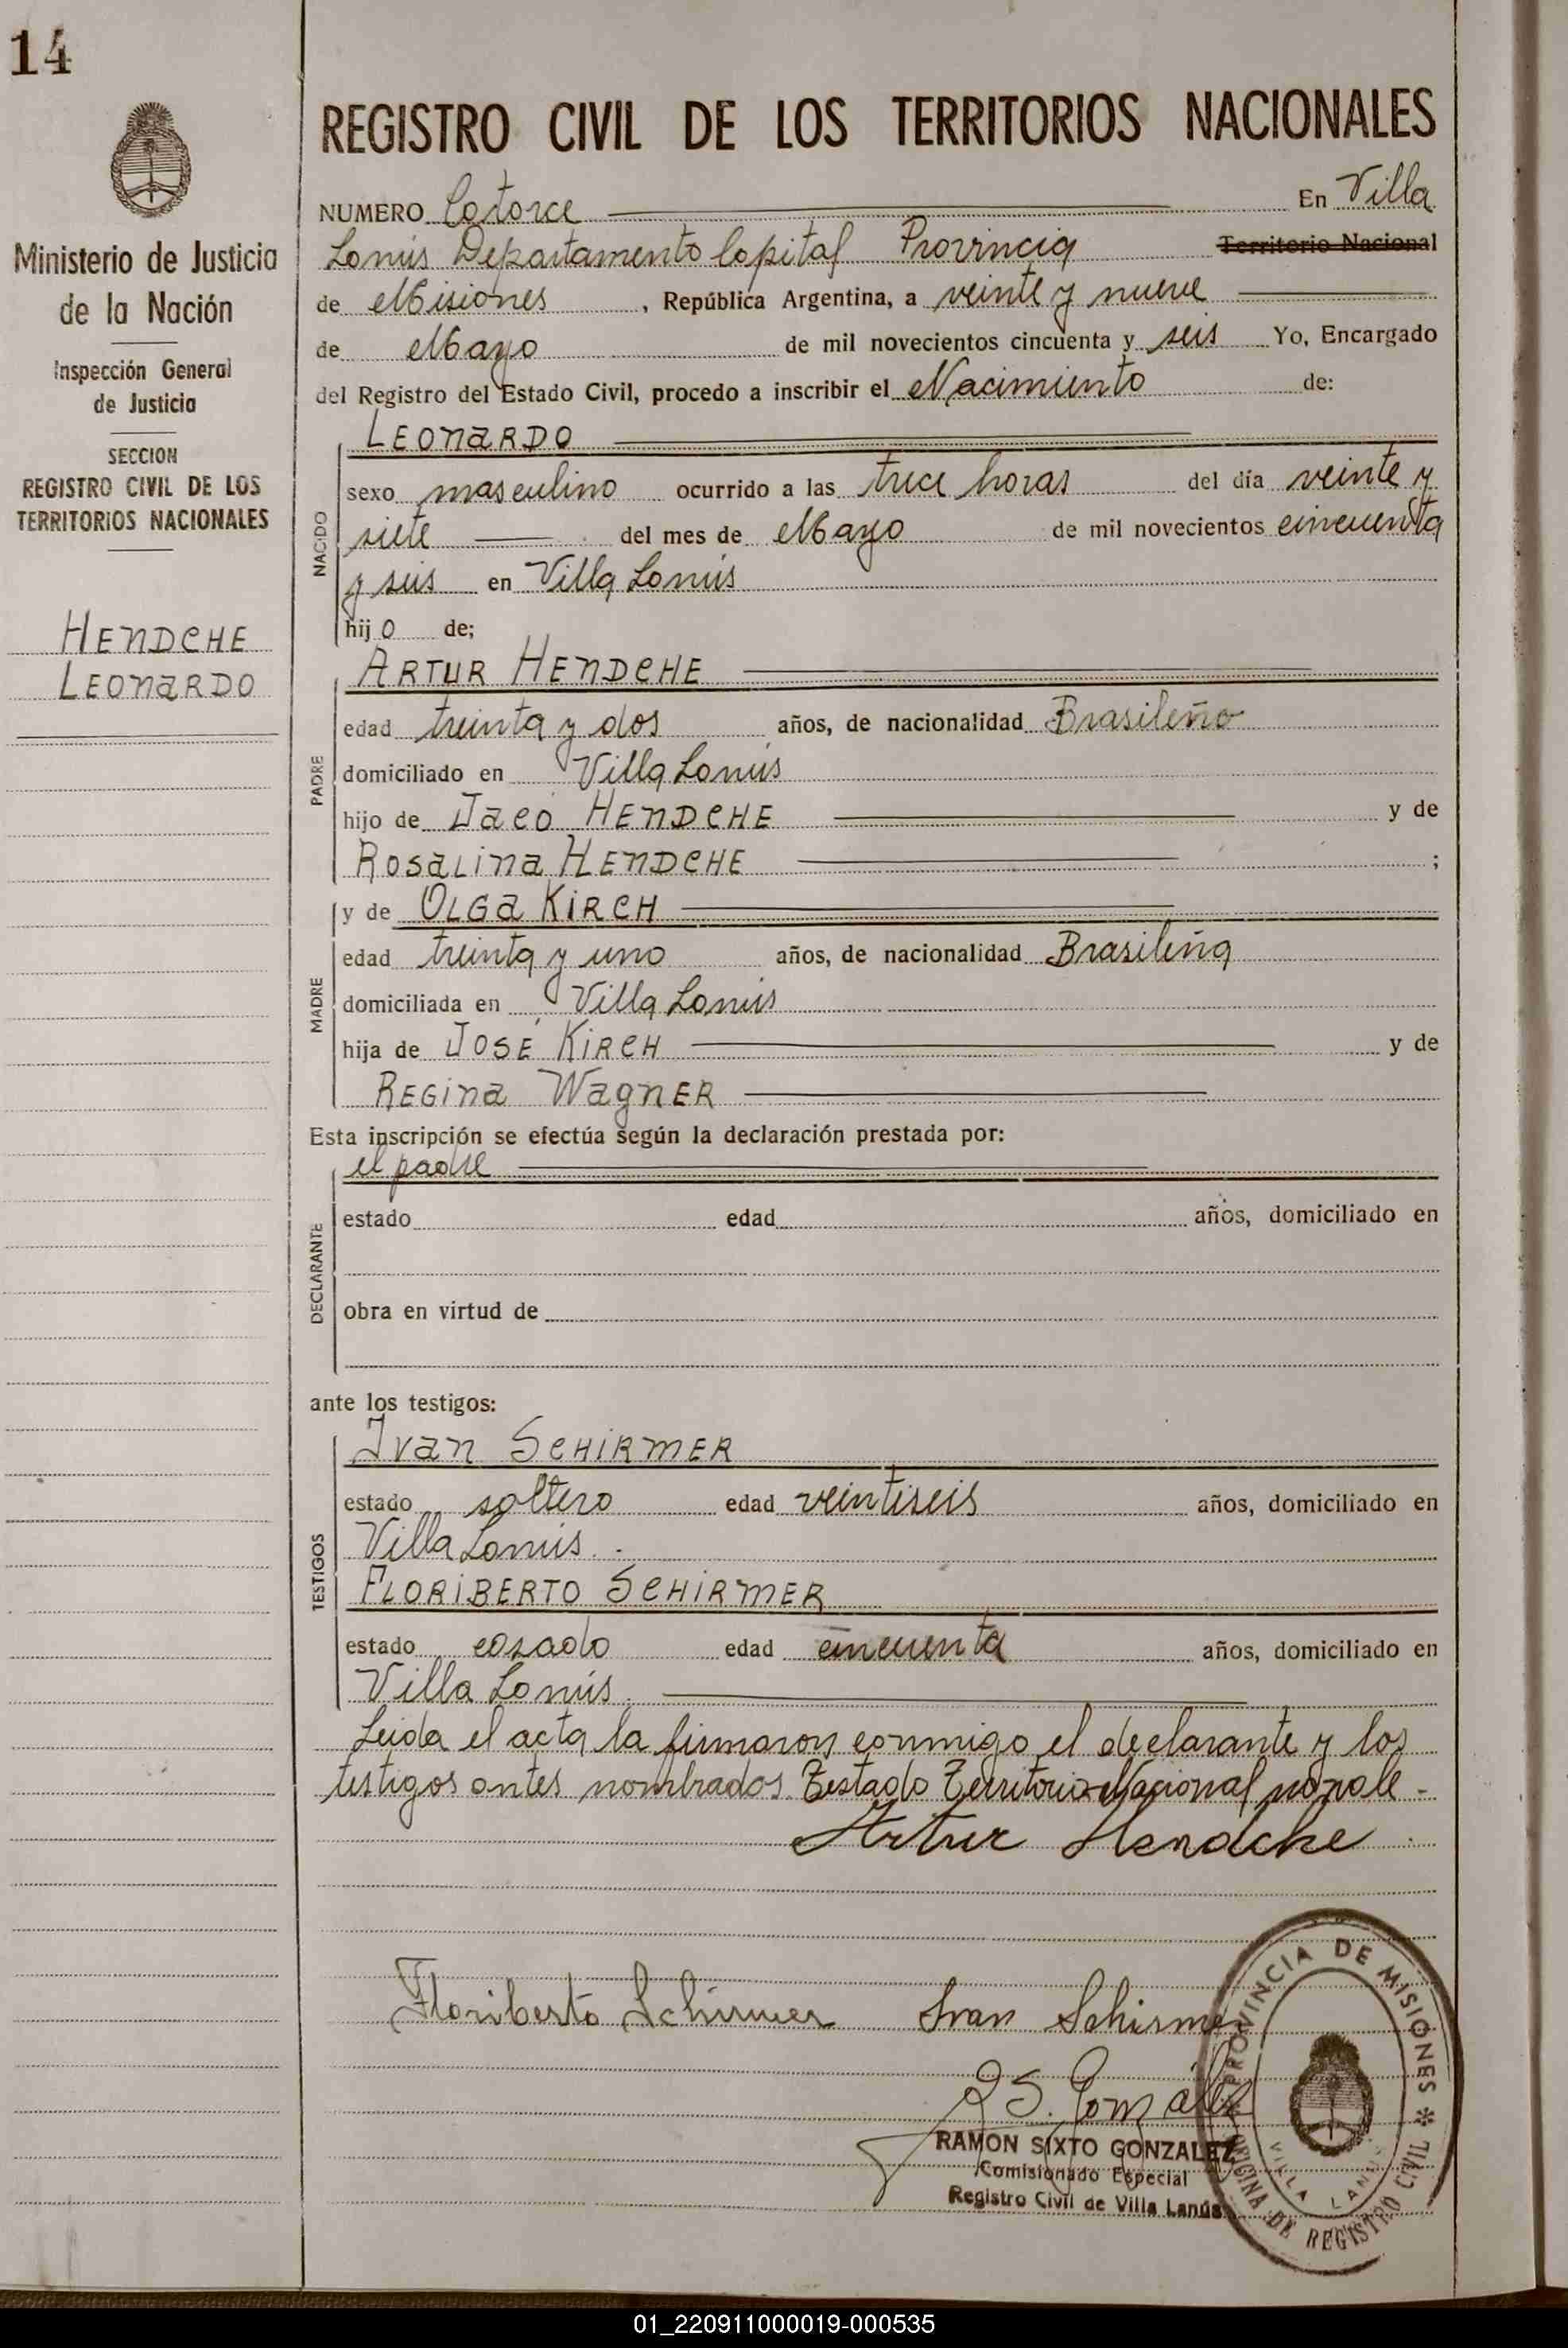 14
Ministerio de Justicia
de la Nación
Inspección General
de Justicia
SECCION
REGISTRO CIVIL DE LOS
TERRITORIOS NACIONALES
HENDCHE
LEONARDO
REGISTRO CIVIL DE LOS TERRITORIOS NACIONALES
NUMERO Catorce En Villa
Lanús Departamento Capital Provincia Territorio Nacional
de Misiones, República Argentina, a veinte y nueve
de Mayo de mil novecientos cincuenta y seis Yo, Encargado
del Registro del Estado Civil, procedo a inscribir el Nacimiento de:
NACIDO
LEONARDO
sexo masculino ocurrido a las trece horas del día veinte y
siete del mes de Mayo de mil novecientos cincuenta
y seis en Villa Lanús
hijo de;
PADRE
ARTUR HENDCHE
edad treinta y dos años, de nacionalidad Brasileño
domiciliado en Villa Lanús
hijo de Jacó HENDCHE y de
ROSALINA HENDCHE ;
MADRE
y de OLGA KIRCH
edad treinta y uno años, de nacionalidad Brasileña
domiciliada en Villa Lanús
hija de JOSÉ KIRCH y de
REGINA WAGNER
Esta inscripción se efectúa según la declaración prestada por:
DECLARANTE
el padre
estado edad años, domiciliado en
obra en virtud de
ante los testigos:
TESTIGOS
IVAN SCHIRMER
estado soltero edad veintiseis años, domiciliado en
Villa Lanús.
FLORIBERTO SCHIRMER
estado casado edad cincuenta años, domiciliado en
Villa Lanús.
Leida el acta la firmaron conmigo el declarante y los
testigos antes nombrados. Testado Territorio Nacional no vale -
Artur Hendche
Floriberto Schirmer Ivan Schirmer
R S. Gonzalez
RAMON SIXTO GONZALEZ
Comisionado Especial
Registro Civil de Villa Lanús
PROVINCIA DE MISIONES * OFICINA DE REGISTRO CIVIL
VILLA LANUS
01_220911000019-000535